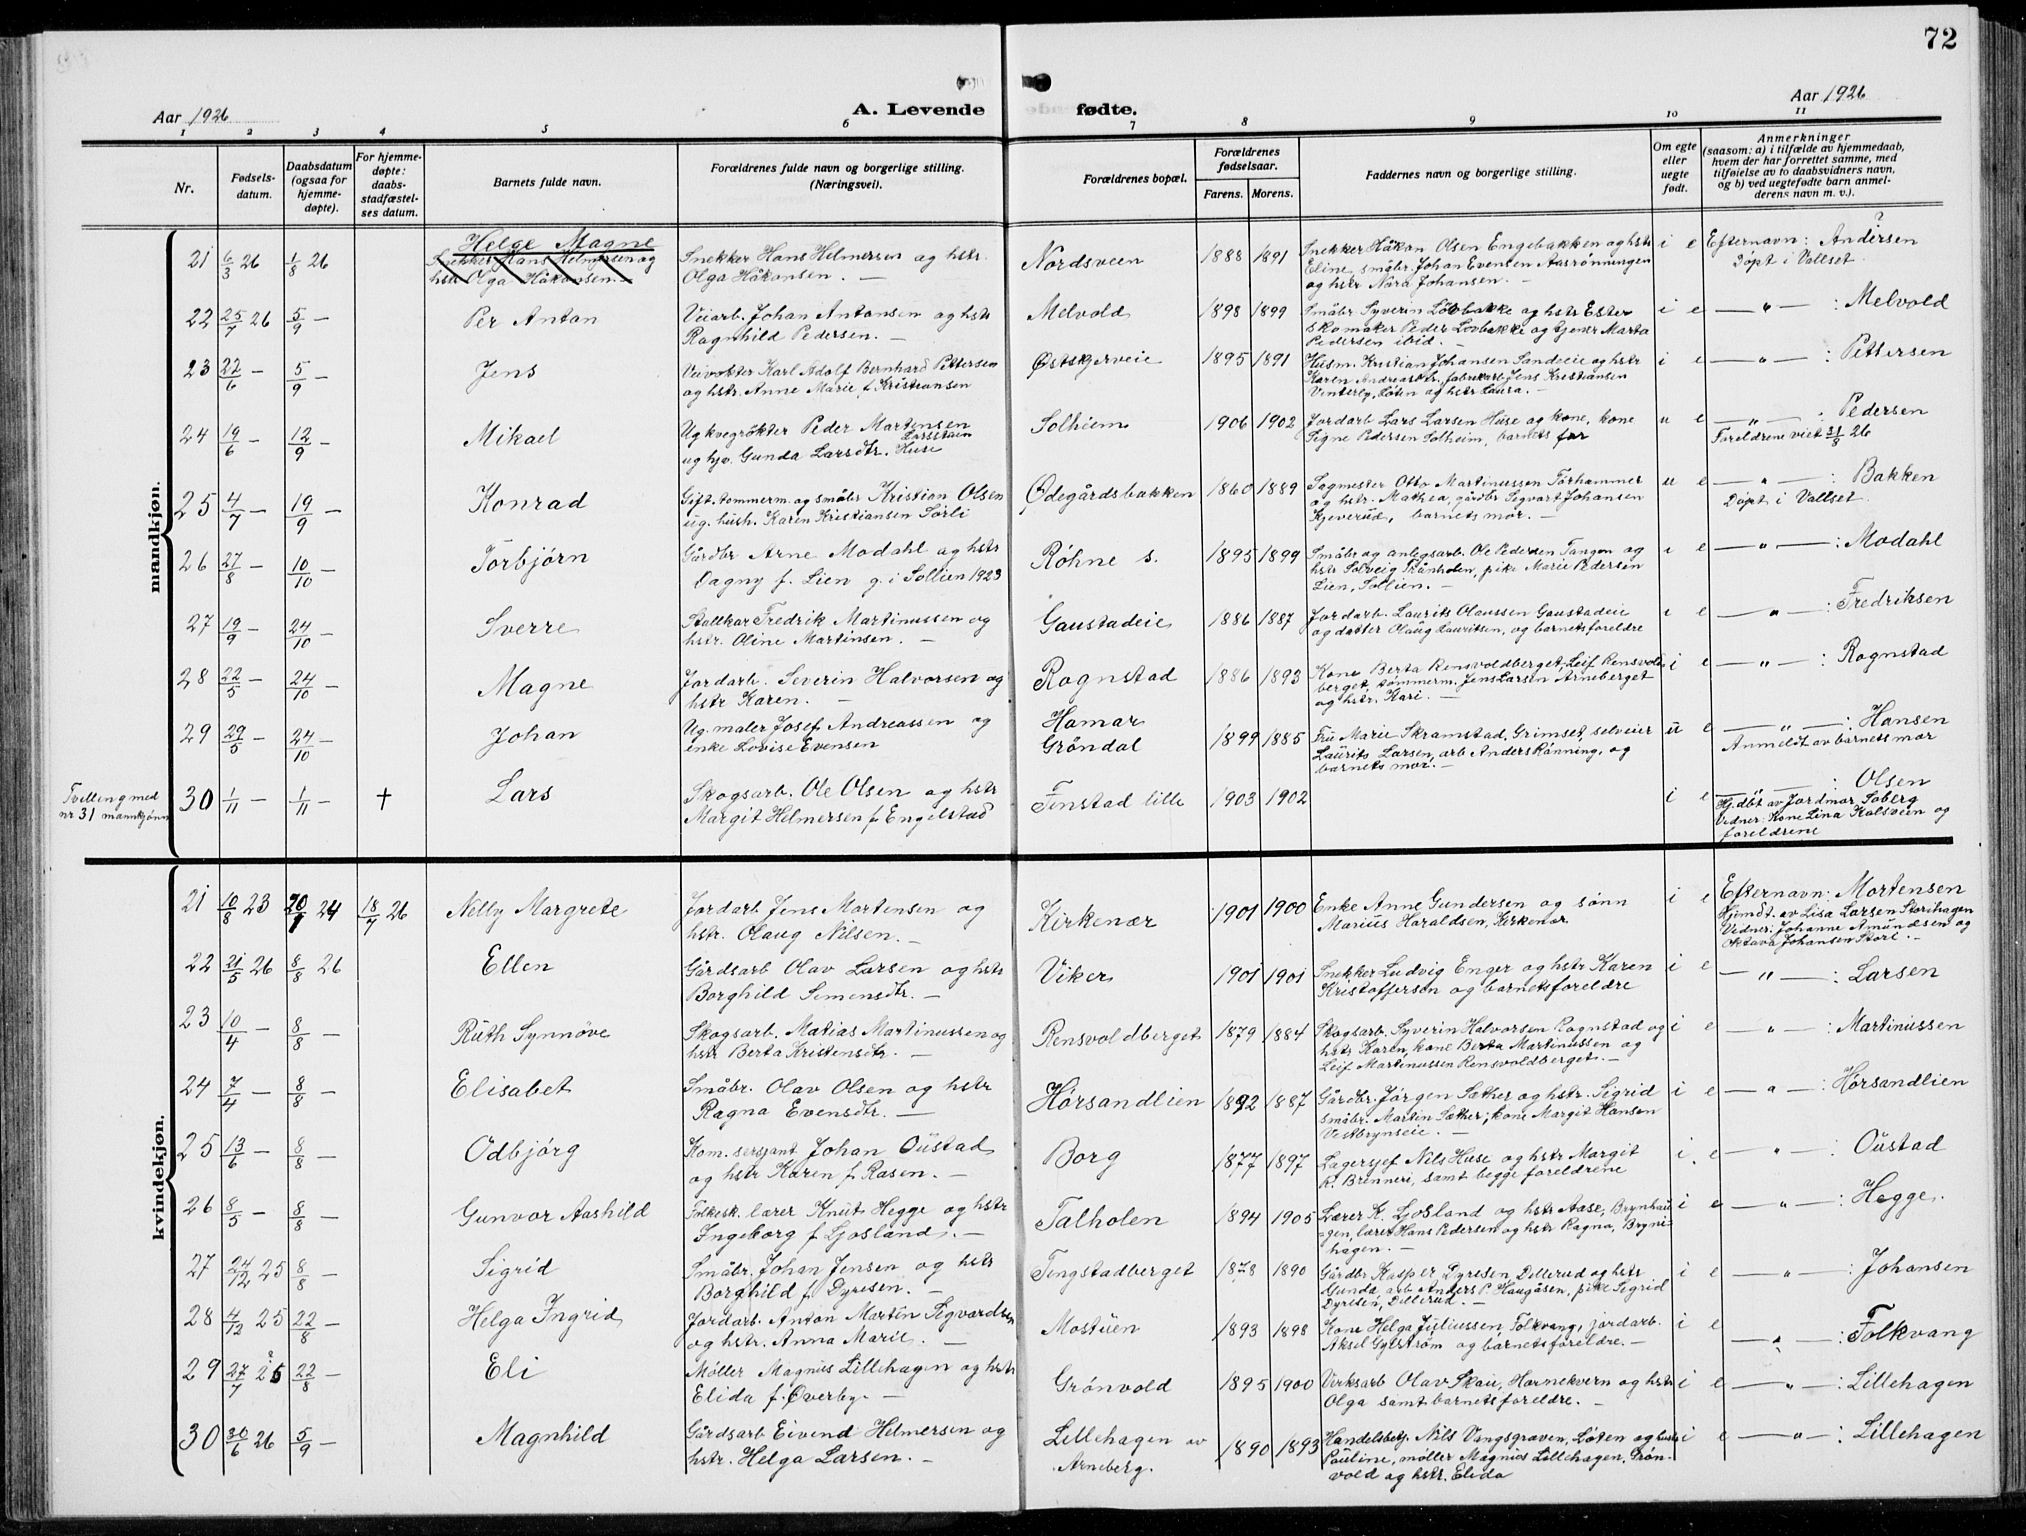 72
Aar 1926
A. Levende
fødte.
Aar 1926
1 2 3 4 5 6 7 8 9 10 11
Nr.
Fødsels-
datum.
Daabsdatum
(ogsaa for
hjemme-
døpte).
For hjemme-
døpte:
daabs-
stadfæstel-
ses datum.
Barnets fulde navn.
Forældrenes fulde navn og borgerlige stilling.
(Næringsvei).
Forældrenes bopæl.
Forældrenes
fødselsaar.
Farens. Morens.
Faddernes navn og borgerlige stilling.
Om egte
eller
uegte
født.
Anmerkninger
(saasom: a) i tilfælde av hjemmedaab,
hvem der har forrettet samme, med
tilføielse av to daabsvidners navn,
og b) ved uegtefødte barn anmel-
derens navn m. v.).
mandkjøn.
21 6/3 26 1/8 26
Helge Magne
Snekker Hans Helmersen og
hstr Olga Håkonsen. —
Snekker Hans Helmersen og hstr.
Olga Håkonsen. —
Nordsveen
1888 1891
Snekker Håkon Olsen Engebakken og hstr
Eline, småbr. Johan Evensen Aasrønningen
og hstr Nora Johansen. —
i e
?
Efternavn: Andersen
Døpt i Vallset.
22 25/7 26 5/9 —
Per Anton
Veiarb. Johan Antonsen og hstr
Ragnhild Pedersen. —
Melvold
1898 1899
Småbr Syverin Løvbakke og hstr Ester
skomaker Peder Lovbakke og tjener Marta
Pedersen ibid. —
i e
— " — : Melvold
23 22/6 — 5/9 —
Jens
Veivokter Karl Adolf Bernhard Pettersen
og hstr. Anne Marie f. Kristiansen
Østskjerveie
1895 1891
Husm. Kristian Johansen Sandeie og hstr
Karen Andreasdtr. fabrikarb Jens Kristiansen
Vinterby, Løten og hstr Laura. —
i e
— " — : Pettersen
24 19/6 — 12/9 —
Mikael
Ug kvegrøkter Peder Martinsen
ug hjv. Gunda Larsdtr. Huse
Solheim
1906 1902
Jordarb Lars Larsen Huse og kone, kone
Signe Pedersen Solheim, barnets far
u e
— " — : Pedersen
Foreldrene viet 31/8 26
25 4/7 — 19/9 —
Konrad
Gift. tommerm. og småbr Kristian Olsen
ug. hush. Karen Kristiansen Sørli
Ødegårdsbakken
1860 1889
Sagmester Otto Martinussen Torhammer
og hstr. Mathea, gårdbr Sigvart Johansen
Kjeverud, barnets mor. —
u e
— " — : Bakken
Døpt i Vallset.
26 27/8 — 10/10 —
Torbjørn
Gårdbr Arne Modahl og hstr
Dagny f. Lien g. i Sollien 1923
Røhne s.
1895 1899
Småbr og anlegsarb. Ole Pedersen Tangen og
hstr Solveig Skånholen, pike Marie Pedersen
Lien, Sollien. —
i e
— " — : Modahl
27 19/9 — 24/10 —
Sverre
Stallkar Fredrik Martinussen og
hstr. Oline Martinsen. —
Gaustadeie
1886 1887
Jordarb. Laurits Olaussen Gaustadeie
og datter Olaug Lauritsen, og barnets foreldre
i e
— " — : Fredriksen
28 22/5 — 24/10 —
Magne
Jordarb. Severin Halvorsen og
hstr Karen. —
Rognstad
1886 1893
Kone Berta Rensvoldberget, Leif Rensvold-
berget, tømmerm. Jens Larsen Arneberget
og hstr. Kari. —
i e
— " — : Rognstad
29 29/5 — 24/10 —
Johan
Ug. maler Josef Andreassen og
enke Lovise Evensen
Hamar
Grøndal
1899 1885
Fru Marie Skramstad, Grimset, selveier
Laurits Larsen, arb Anders Rønning, og
barnets mor. —
u e
— " — : Hansen
Anmeldt av barnets mor
Tvilling med
nr 31 mannkjønn
30 1/11 — 1/11 — †
Lars
Skogsarb. Ole Olsen og hstr
Margit Helmersen f. Engelstad
Finstad lille
1903 1902
i e
— : Olsen
Hj.døbt av Jordmor Soberg
Vidner: Kone Lina Kolsveen og
foreldrene
kvindekjøn.
21 10/8 23 20/1 24 18/7 26
Nelly Margrete
Jordarb Jens Mortensen og
hstr. Olaug Nilsen. —
Kirkenær
1901 1900
Enke Anne Gundersen og sønn
Marius Haraldsen, Kirkenær
i e
Efternavn: Mortensen
Hjmdt. av Lisa Larsen Storihagen
Vidner: Johanne Amundsen og
Oktava Johansen Stori. —
22 21/5 26 8/8 26
Ellen
Gårdsarb Olav Larsen og hstr
Borghild Simensdtr. —
Viker
1901 1901
Snekker Ludvig Enger og hstr Karen
Kristoffersen og barnets foreldre
i e
— " — : Larsen
23 10/4 — 8/8 —
Ruth Synnøve
Skogsarb. Matias Martinussen og
hstr Berta Kristensdtr. —
Rensvoldberget
1879 1884
Skogsarb. Syverin Halvorsen Rognstad og
hstr Karen, kone Berta Martinussen og
Leif Martinussen Rensvoldberget. —
i e
— " — : Martinussen
24 7/4 — 8/8 —
Elisabet
Småbr. Olav Olsen og hstr
Ragna Evensdtr. —
Hørsandlien
1892 1887
Gårdbr. Jørgen Sæther og hstr. Sigrid
småbr. Martin Sæther, kone Margit Hansen
Vestbrynseie. —
i e
— " — : Hørsandlien
25 13/6 — 8/8 —
Odbjørg
Kom. sersjant Johan Oustad
og hstr Karen f. Rasen. —
Borg
1877 1897
Lagersjef Nils Huse og hstr Margit
R. Brenneri, samt begge foreldrene
i e
— " — : Oustad
26 8/5 — 8/8 —
Gunvor Aashild
Folkesk. lærer Knut Hegge og hstr
Ingeborg f. Ljosland. —
Talholen
1894 1905
Lærer K. Ljosland og hstr Aase, Brynhau-
gen, lærer Hans Pedersen og hstr Ragna, Bryni-
hagen. —
i e
— " — : Hegge.
27 24/12 25 8/8 —
Sigrid
Småbr. Johan Jensen og hstr
Borghild f. Dyresen. —
Tingstadberget
1878 1890
Gårdbr Kasper Dyresen, Dillerud og hstr
Gunda, arb Anders P. Haugåsen, pike Sigrid
Dyresen, Dillerud. —
i e
— " — : Johansen
28 4/12 25 22/8 —
Helga Ingrid
Jordarb. Anton Martin Sigvardsen
og hstr. Anna Marie. —
Mostuen
1893 1898
Kone Helga Juliussen, Folkvang, jordarb.
Aksel Gylstrøm og barnets foreldre. —
i e
— " — : Folkvang
29 27/7 25 22/8 —
Eli
Møller Magnus Lillehagen og hstr
Elida f. Øverby —
Grønvold
1895 1900
Virksarb Olav Skau, Hornekvern og hstr
Olga samt barnets foreldre. —
i e
— " — : Lillehagen
30 30/6 26 5/9 —
Magnhild
Gårdsarb Eivind Helmersen og
hstr. Helga Larsen. —
Lillehagen av
Arneberg.
1890 1893
Handelsbetj. Nils Vangsgraven, Løten og hustru
Pauline, møller Magnus Lillehagen, Grøn-
vold og hstr. Elida
i e
— " — : Lillehagen